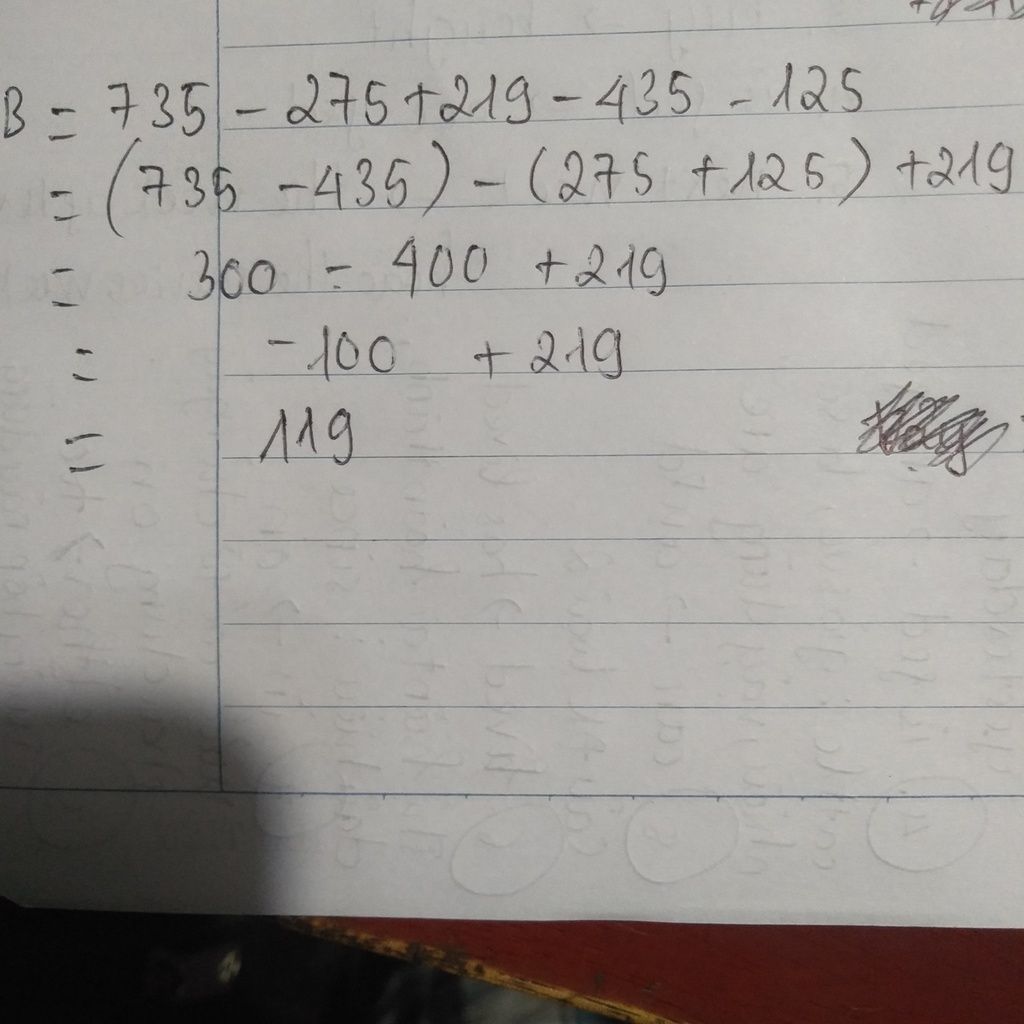 B = 735 - 275 + 219 - 435 - 125
= (735 - 435) - (275 + 125) + 219
= 300 - 400 + 219
= -100 + 219
= 119